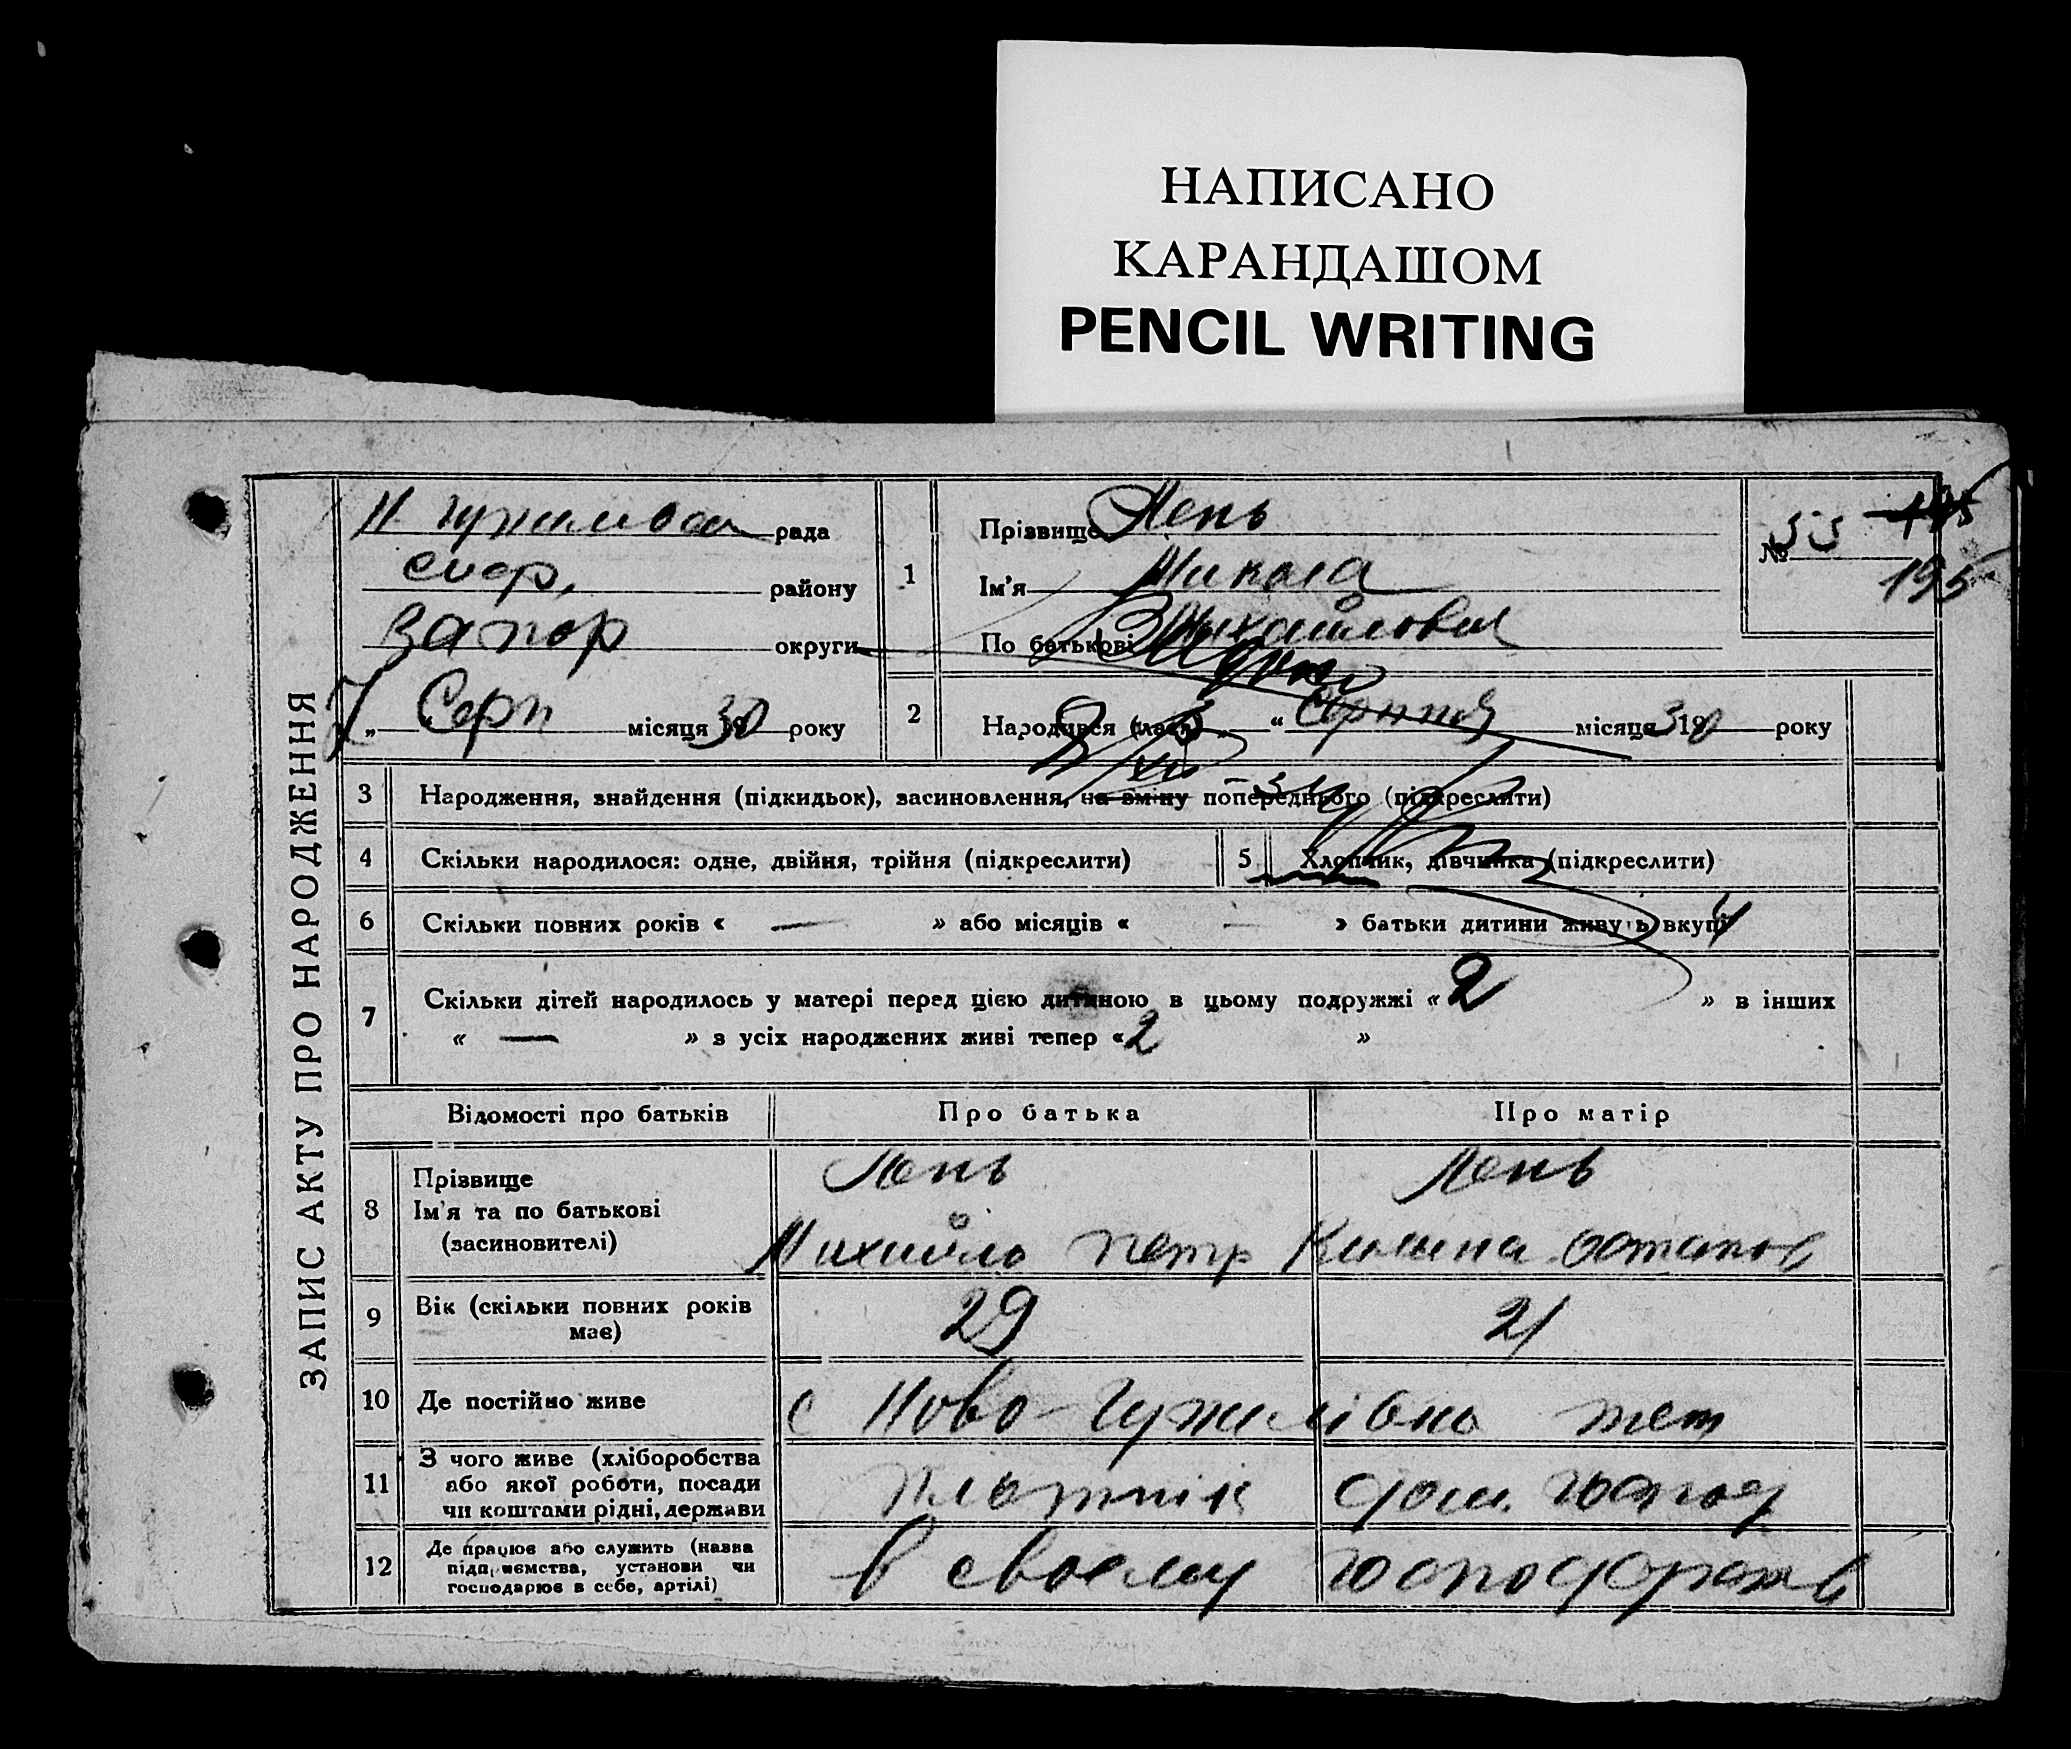 НАПИСАНО
КАРАНДАШОМ
PENCIL WRITING
ЗАПИС АКТУ ПРО НАРОДЖЕННЯ
рада
району
Запор округи
7 „ Серп місяця 1930 року
№ 55
195
195
1 Прізвище Лень
Ім'я Микола
По батькові Михайлович
2 Народився (лась) 3 „ “ Серпня місяця 1930 року
3 Народження, знайдення (підкидьок), засиновлення, на зміну попереднього (підкреслити)
4 Скільки народилося: одне, двійня, трійня (підкреслити)
5 Хлопчик, дівчинка (підкреслити)
6 Скільки повних років « — » або місяців « — » батьки дитини живуть вкупі 4
7 Скільки дітей народилось у матері перед цією дитиною в цьому подружжі « 2 » в інших
« — » з усіх народжених живі тепер « 2 »
Відомості про батьків Про батька Про матір
8 Прізвище Лень Лень
Ім'я та по батькові Михайло Петр Килина Остапов
(засиновителі)
9 Вік (скільки повних років 29 21
має)
10 Де постійно живе с Ново-Гужилівка
11 З чого живе (хліборобства
або якої роботи, посади плотнік дом. господ
чи коштами рідні, держави
12 Де працює або служить (назва
підприємства, установи чи в своєму
господарює в себе, артілі)